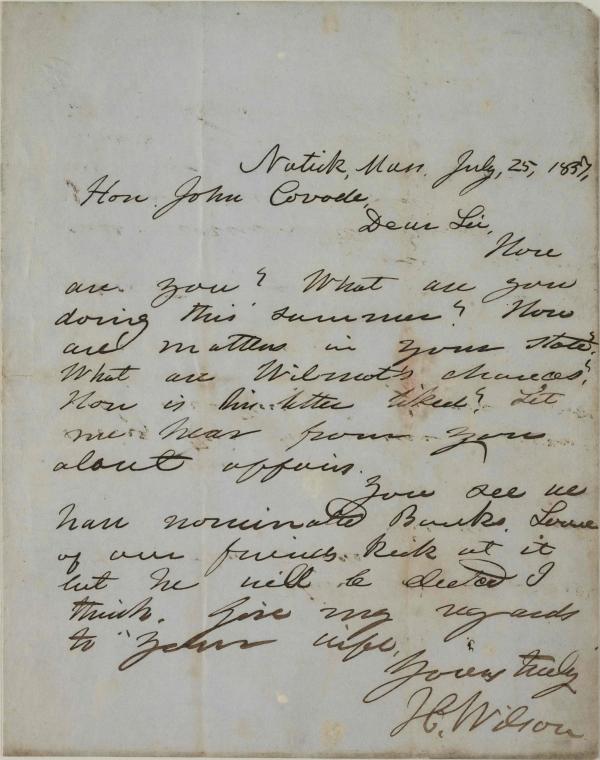 Natick, Mass. July, 25, 1857,
Hon. John Covode,
Dear Sir,
How
are you? What are you
doing this summer? How
are matters in your state?
What are Wilmot's chances?
How is his letter liked? Let
me hear from you
about affairs.
You see we
have nominated Banks. Some
of our friends kick at it
but he will be elected I
think. Give my regards
to your wife.
Yours truly
H. Wilson